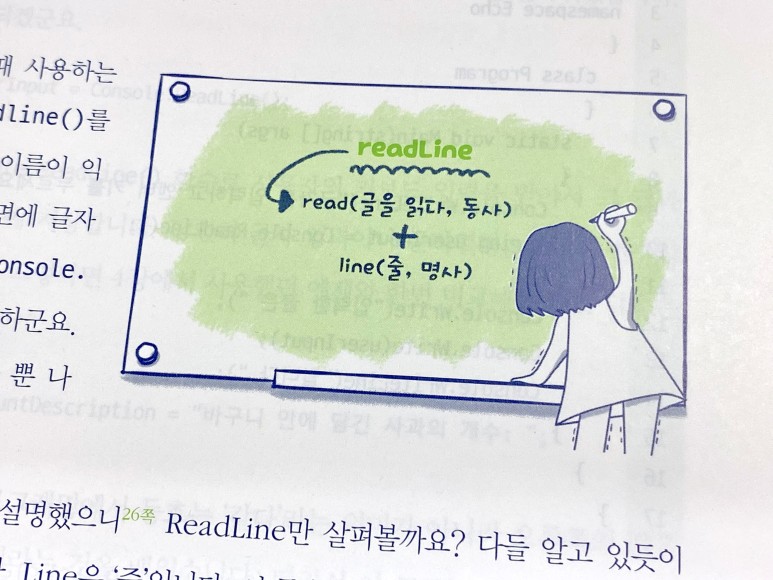 때 사용하는
dline()를
이름이 익
면에 글자
onsole.
하군요.
뿐 나
readLine
read(글을 읽다, 동사)
+
line(줄, 명사)
설명했으니26쪽 ReadLine만 살펴볼까요? 다들 알고 있듯이
Line은 '줄'입니다.